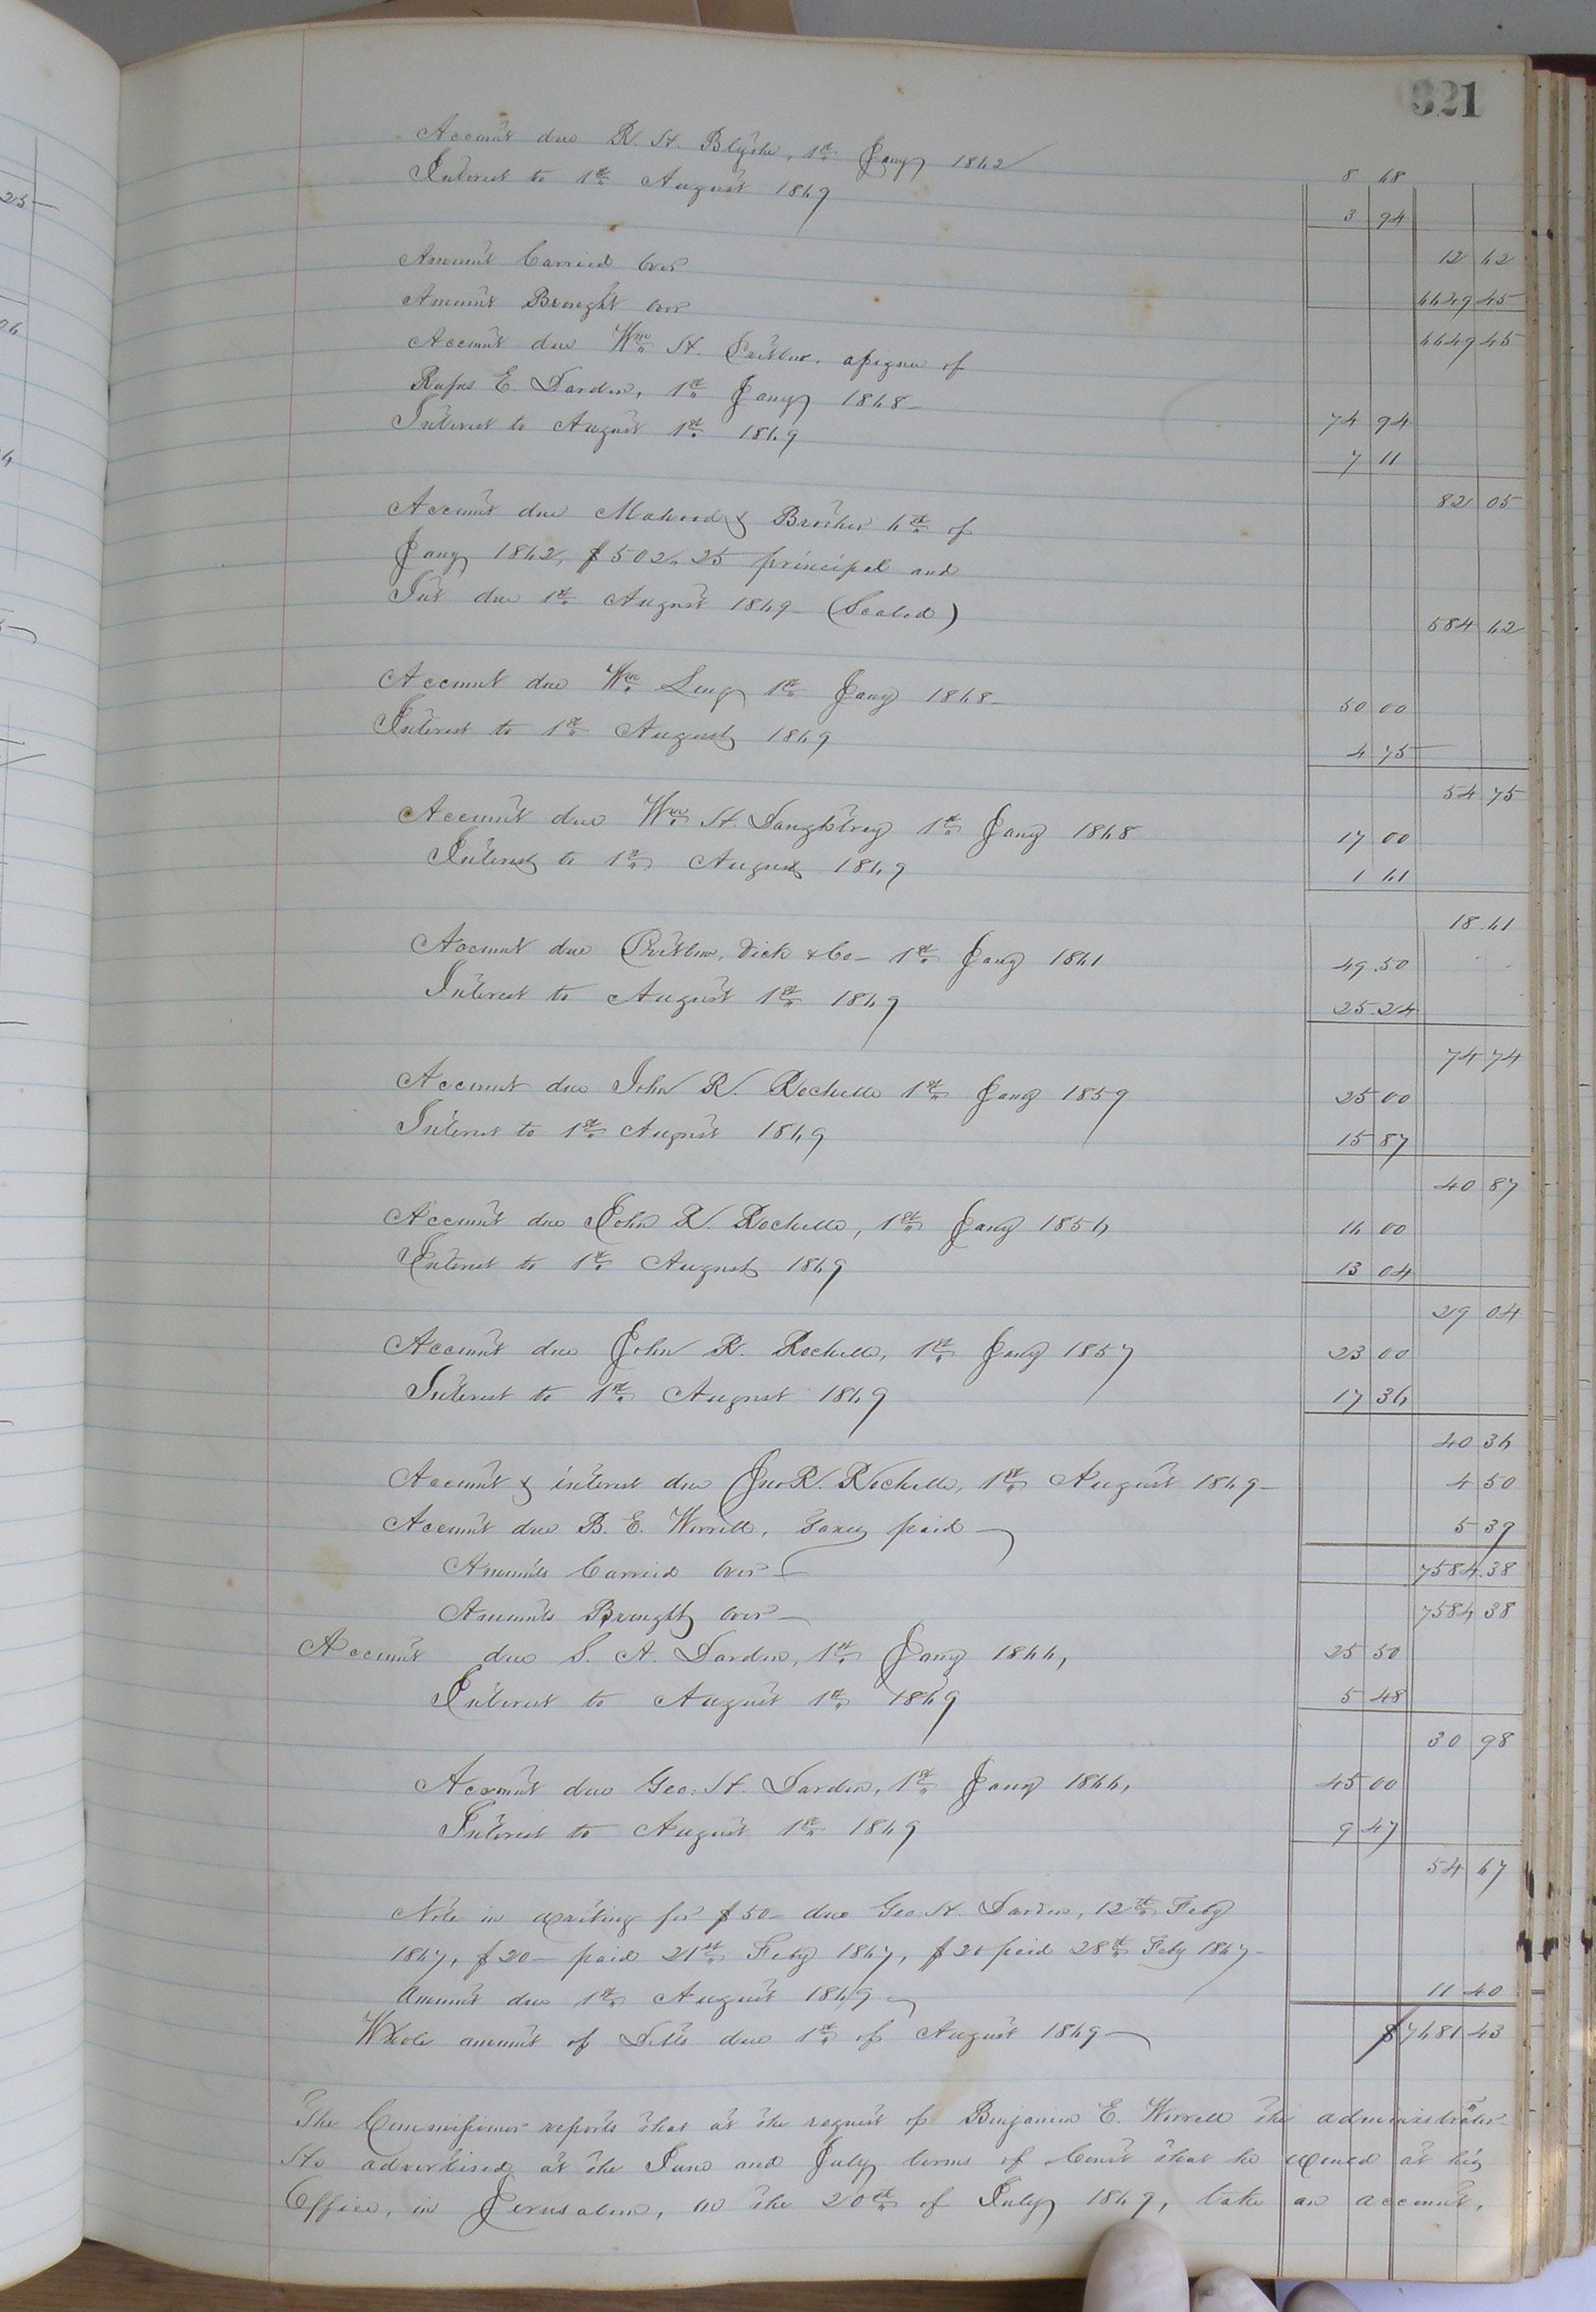 321
Account due R. H. Blythe, 1st Jany 1862 8 68
Interest to 1st August 1869 3 94
12 62
Amount Carried Over 6649 45
Amount Brought over 6649 45
Account due Wm H. Pretlow, assignee of
Rufus E. Darden, 1st Jany 1868 74 94
Interest to August 1st 1869 7 11
82 05
Account due Mahood & Brother 6th of
Jany 1862, $502.25 principal and
Int due 1st August 1869 (Scaled) 584 62
Account due Wm Leigh 1st Jany 1868 50 00
Interest to 1st August 1869 4 75
54 75
Account due Wm H. Daughtrey 1st Jany 1868 17 00
Interest to 1st August 1869 1 61
18.61
Account due Pretlow, Dick & Co 1st Jany 1861 49.50
Interest to August 1st 1869 25.24
74 74
Account due John R. Rochelle 1st Jany 1859 25 00
Interest to 1st August 1869 15 87
40 87
Account due John R. Rochelle, 1st Jany 1856 16 00
Interest to 1st August 1869 13 04
29 04
Account due John R. Rochelle, 1st Jany 1857 23 00
Interest to 1st August 1869 17 36
40 36
Account & interest due Jno R. Rochelle, 1st August 1869 4 50
Account due B. E. Worrell, taxes paid 5 39
Amounts Carried Over 7584.38
Amounts Brought over 7584 38
Account due S. A. Darden, 1st Jany 1866, 25 50
Interest to August 1st 1869 5 48
30 98
Account due Geo. H. Darden, 1st Jany 1866, 45 00
Interest to August 1st 1869 9 47
54 67
Note in writing for $50 due Geo. H. Darden, 12th Feby
1867, $20 paid 21st Feby 1867, $20 paid 28th Feby 1867
Amount due 1st August 1869 11 40
Whole amount of Debts due 1st of August 1869 $7681 43
The Commissioner reports that at the request of Benjamin E. Worrell the administrator
He advertised at the June and July terms of Court that he would at his
Office, in Jerusalem, on the 20th of July 1869, take an account,